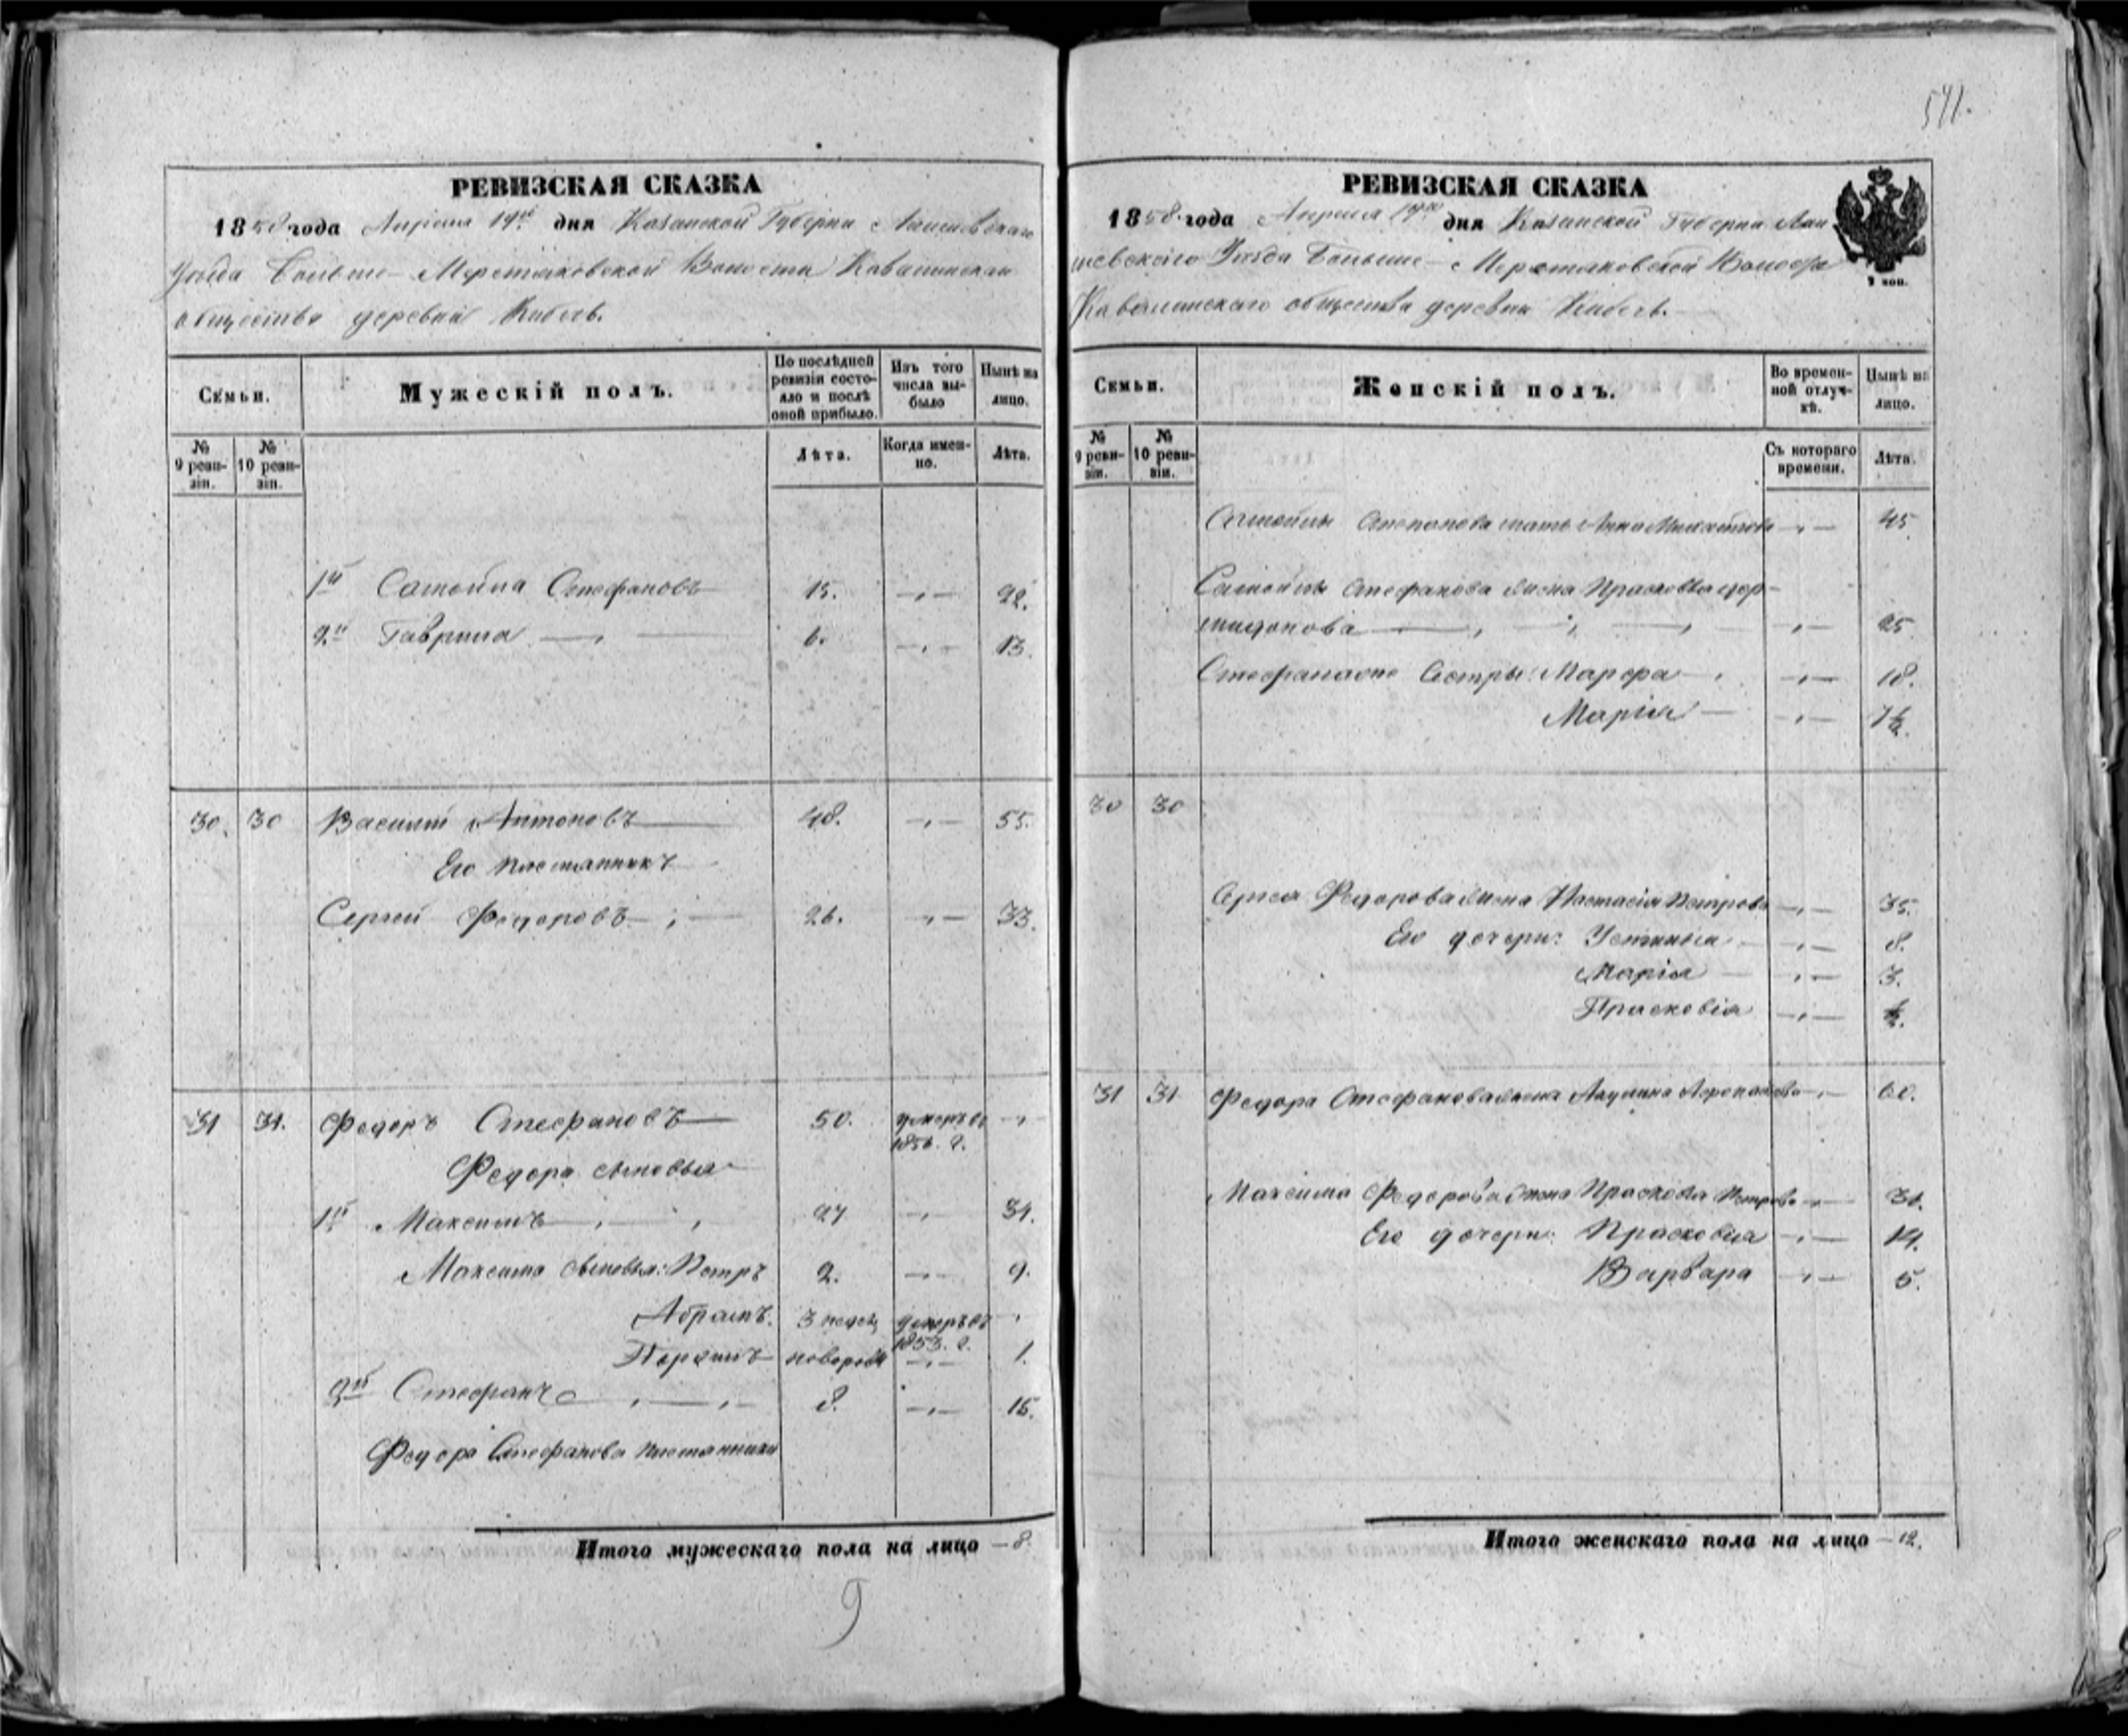 541.
РЕВИЗСКАЯ СКАЗКА
1858 года Апреля 19го дня Казанской Губерніи Лаишевскаго
Уезда Больше-Меретяковской Волости Кавалинскаго
общества деревни Кибечь.
Семьи.
Мужескій полъ.
По послѣдней ревизіи состояло и послѣ оной прибыло.
Изъ того числа выбыло
Нынѣ на лицо.
№ 9 ревизіи.
№ 10 ревизіи.
Лѣта.
Когда именно.
Лѣта.
1й Самойла Стефановъ 15. 22.
2й Гаврила 6. 13.
30. 30 Василій Антоновъ 48. 55.
Его племянникъ
Сергей Федоровъ 26. 33.
31 31. Федоръ Стефановъ 50. умеръ въ 1856. г.
Федора сыновья
1й Максимъ 27 34.
Максима сыновья: Петръ 2. 9.
Абрамъ. 3 недел умеръ въ 1853. г.
новорожд 1.
2й Стефанъ 8. 15.
Федора Стефанова племянники
Итого мужескаго пола на лицо 8
9
РЕВИЗСКАЯ СКАЗКА
1858 года Апреля 19го дня Казанской Губерніи Лаи
шевскаго Уезда Больше-Меретяковской Волости
Кавалинскаго общества деревни Кибечь.
2 коп.
Семьи.
Женскій полъ.
Во временной отлучкѣ.
Нынѣ на лицо.
№ 9 ревизіи.
№ 10 ревизіи.
Съ котораго времени.
Лѣта.
Самойлы Степанова мать Анна 45
Самойлы Стефанова жена Прасковья
25
Сестры: Марфа 18.
Марія 7½.
30 30
Сергея Федорова жена Настасія Петрова 35.
Его дочери: Устинья 8.
Марія 3.
Прасковія ½.
31 31 Федора Стефанова жена Акулина 60.
Максима Федорова жена Прасковья Петрова
Его дочери: Прасковья 14.
Варвара 5.
Итого женскаго пола на лицо 12.